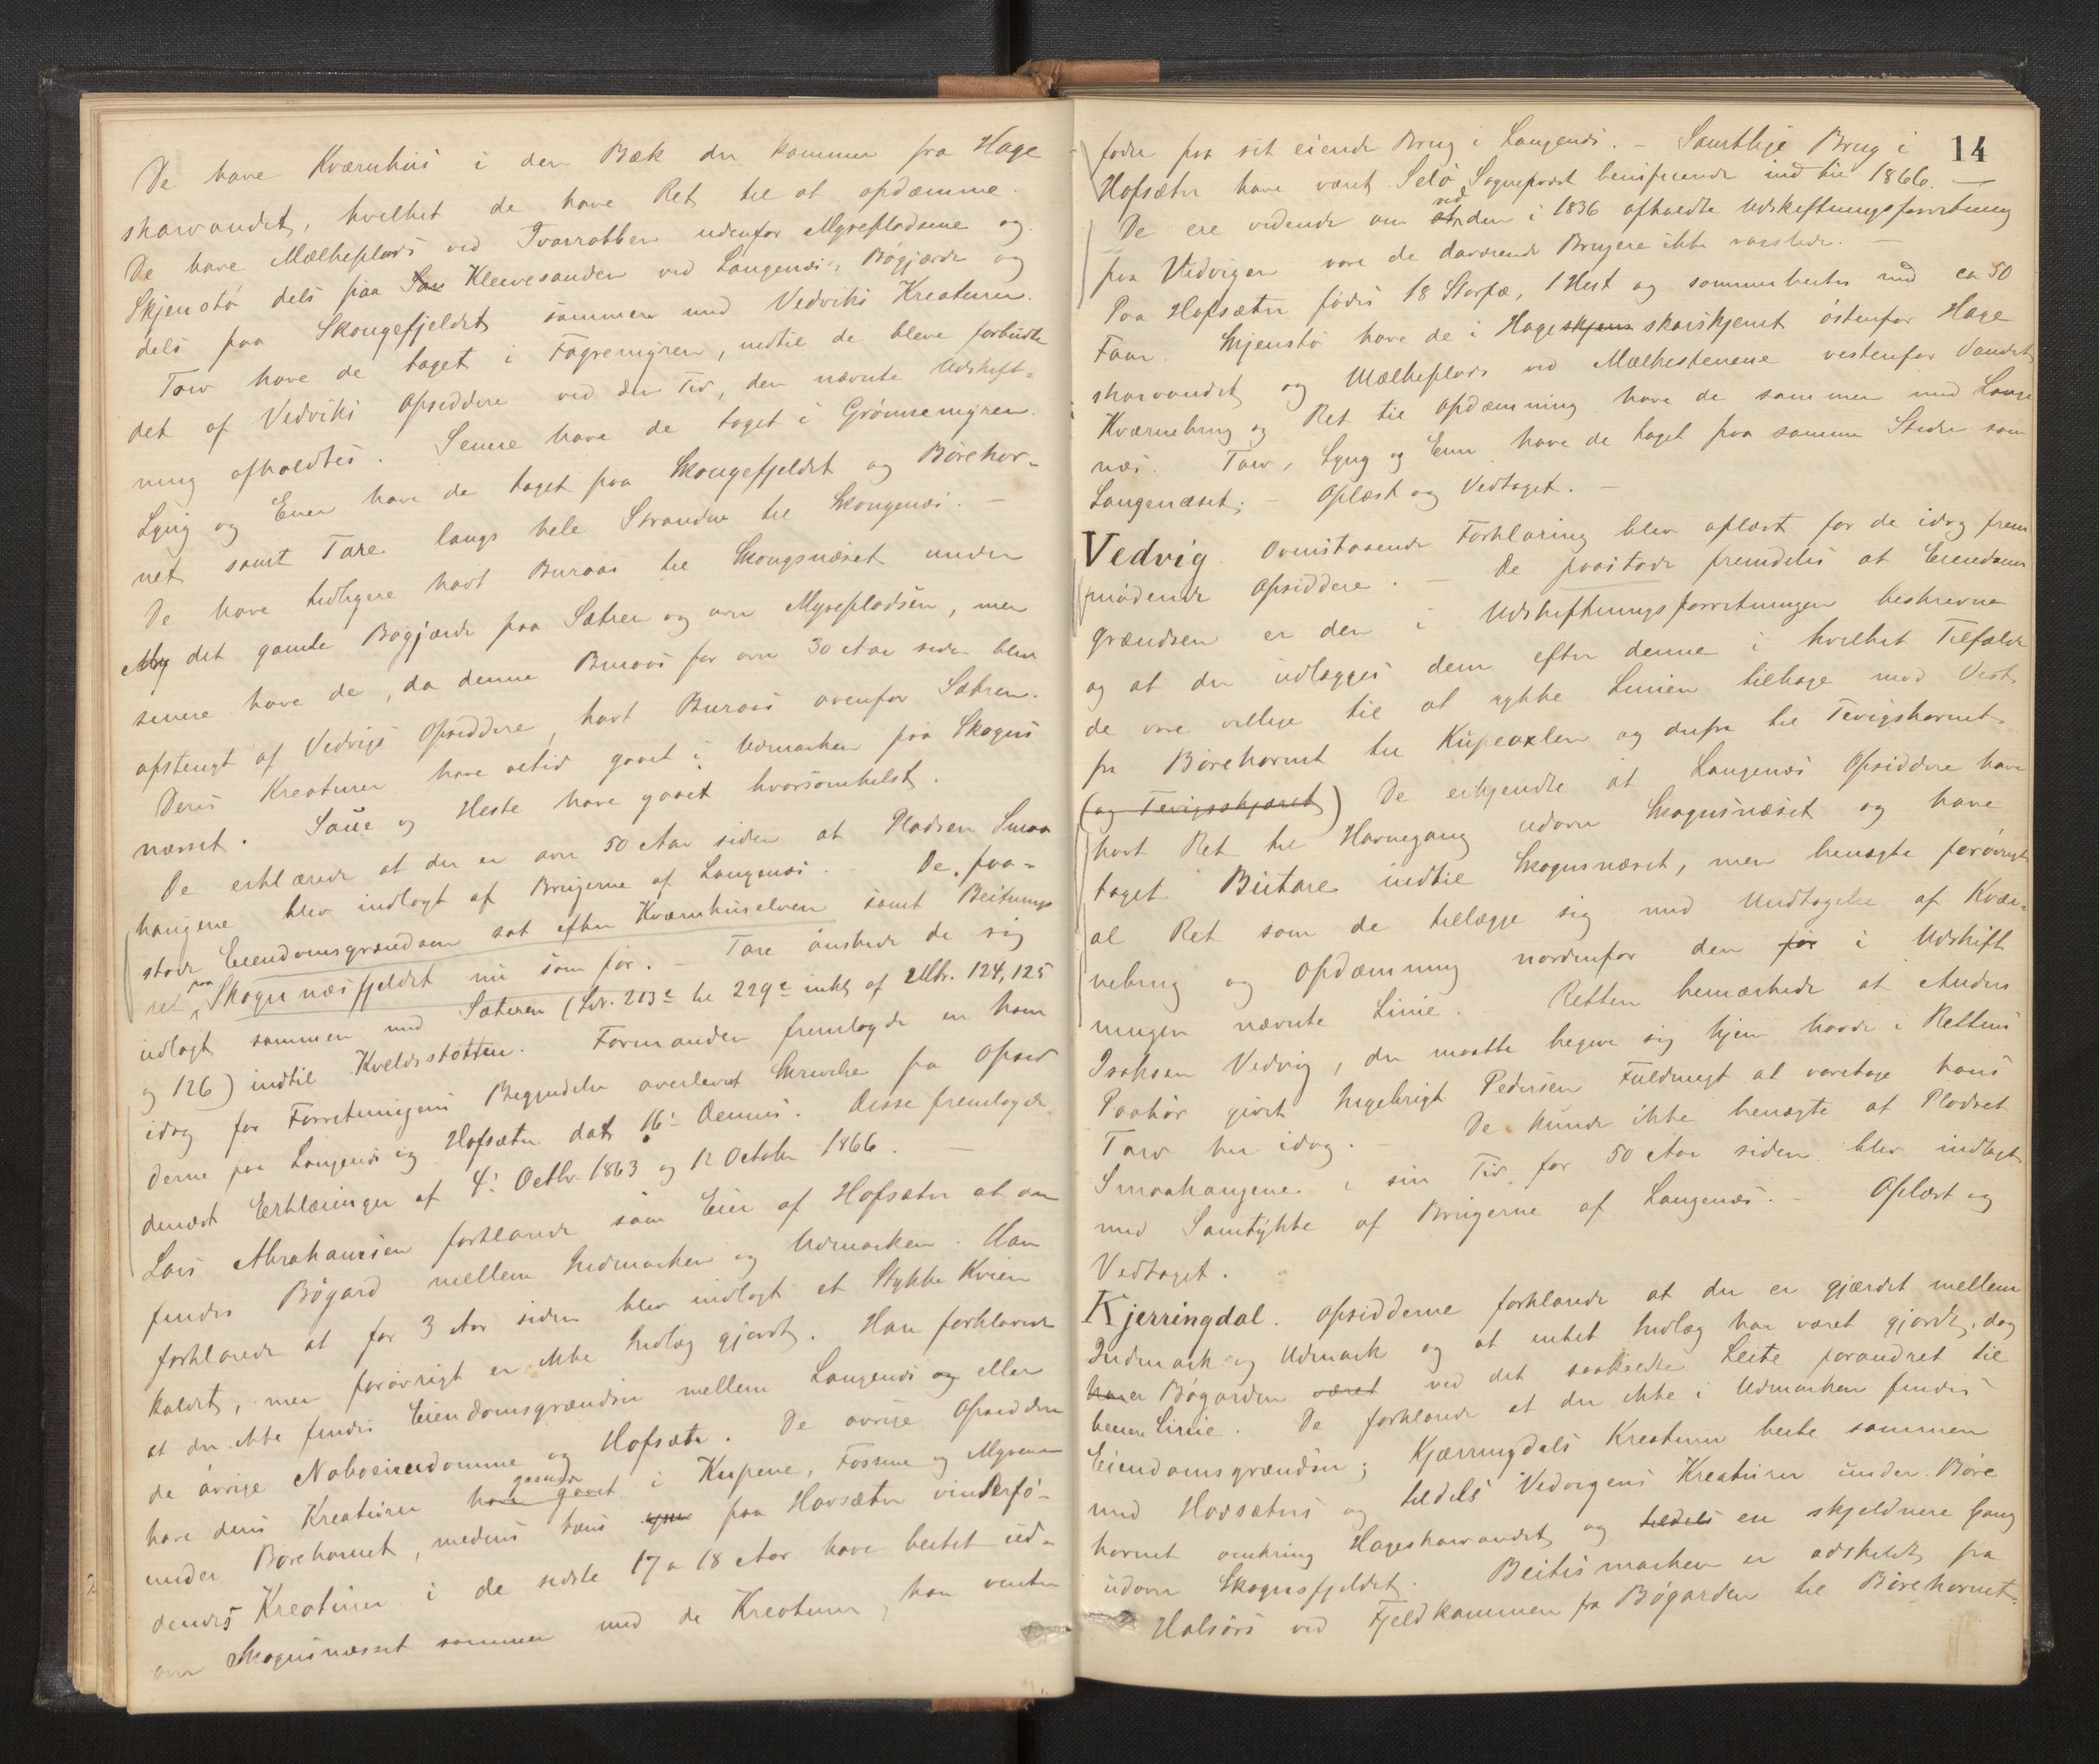 De have Kværnhus i den Bæk der kommer fra Hage
skarvandet, hvilket de have Ret til at opdæmme.
De have Mælkeplads ved Tvarrabben udenfor Myrepladsene og
Skjenstø dels paa San Kleivesanden ved Langenæs, Bøgjærde og
dels paa Skongefjeldet sammen med Vedviks Kreaturer.
Torv have de taget i Fagremyren, indtil de bleve forbudte
det af Vedviks Opsiddere ved den Tid, den nævnte Udskift-
ning afholdtes. Senere have de taget i Grønnemyren.
Lyng og Ener have de taget paa Skongefjeldet og Børehor-
net samt Tare langs hele Stranden til Skongenæs. -
De have tidligere havt Buraas til Skongsnæset under
My det gamle Bøgjærde paa Sætren og over Myrepladsen, men
senere have de, da denne Buraas for over 30 Aar siden blev
afstengt af Vedvigs Opsiddere, havt Buraas ovenfor Sætren.
Deres Kreaturer have altid gaaet i Udmarken paa Skogns
næsset. Saue og Heste have gaaet hvorsomhelst.
De erklærede at der er over 50 Aar siden at Pladsen Smaa
haugene blev indlagt af Brugerne af Langenæs. De paa-
stode Eiendomsgrændsen sat efter Kværnhuselven samt Beitnings
ret paa Skogsnæsfjeldet nu som før. - Tare ønskede de sig
udlagt sammen med Sæteren (Lit. 213 c til 229 c inkl. af Mtr. 124, 125
og 126) indtil Kveldsstøtten. Formanden fremlagde en ham
idag før Forretningens Begyndelse overleveret Skrivelse fra Opsid
derne paa Langenæs og Hofsæter dat. 16 dennes. Disse fremlagde
dernæst Erklæringer af 4 Octbr 1863 og 12 October 1866. -
Lars Abrahamsen forklarede som Eier af Hofsæter at der
findes Bøgard mellem Indmarken og Udmarken. Han
forklarede at for 3 Aar siden blev indlagt et Stykke Kvien
kaldet, men forøvrigt er ikke Indlæg gjordt. Han forklarede
at der ikke findes Eiendomsgrændser mellem Langenæs og eller
de øvrige Naboeiendomme og Hofsæter. De øvrige Opsiddere
have deres Kreaturer have gaaet gaaende i Kupene, Fossene og Myrene
under Børehornet, medens hans egne paa Hovsæter vinterfø-
dendes Kreaturer i de sidste 17 a 18 Aar have beitet ud-
over Skogsnæsset sammen med de Kreaturer, han vinter
14
føder paa sit eiende Brug i Langenæs. - Samtlige Brug i
Hofsæter have været Selø Sognepræst benificerende ind til 1866. -
De ere vidende om at ved den i 1836 afholdte Udskiftningsforretning
paa Vedvigen vare de daværende Brugere ikke varslede. -
Paa Hofsæter fødes 18 Storfæ, 1 Hest og sommerbeites med ca 50
Faar. Skjenstø have de i Hageskjens skarskjenet østenfor Hage
skarvandet og Mælkeplads ved Mælkestenene vestenfor Vandet
Kværnebrug og Ret til Opdæmning have de sammen med Lange
næs. Torv, Lyng og Ener have de taget paa samme Steder som
Langenæset. - Oplæst og Vedtaget. -
Vedvig. Ovenstaaende Forklaring blev oplæst for de idag frem
mødende Opsiddere. - De paastode fremdeles at Eiendoms
grændsen er den i Udskiftningsforretningen beskrevne
og at der udlægges dem efter denne i hvilket Tilfælde
de vare villige til at rykke Linien tilbage mod Vest
fra Børehornet til Kupeaxlen og derfra til Tevigshornet
(og Tevigsskjæret) De erkjendte at Langenæs Opsiddere have
havt Ret til Havnegang udover Skogsnæset og have
taget Butare indtil Skogusnæset, men benægte forøvrigt
al Ret som de tillægge sig med Undtagelse af Kvær-
nebrug og Opdæmning nordenfor den for i Udskift
ningen nævnte Linie. - Retten bemærkede at Anders
Isaksen Vedvig, der maatte begive sig hjem havde i Rettens
Paahør givet Ingebrigt Pedersen Fuldmagt at varetage hans
Tarv her idag. - De kunde ikke benægte at Pladset
Smaahaugene i sin Tid, for 50 Aar siden, blev indlagt
med Samtykke af Brugerne af Langenæs. - Oplæst og
Vedtaget.
Kjerringdal. Opsidderne forklarede at der er gjærdet mellem
Indmark og Udmark og at intet Indlæg har været gjordt, dog
har er Bøgarden været ved det saakaldte Leite forandret til
benere Linie. De forklarede at der ikke i Udmarken findes
Eiendomsgrændser; Kjærringdals Kreaturer beite sammen
med Hovsæters og tildels Vedvigens Kreaturer under Børe
hornet omkring Hageskarvandet og tildels en skjeldnere Gang
udover Skognsfjeldet. Beitesmarken er adskildt fra
Halsørs ved Fjeldkammen fra Bøgarden til Børehornet.